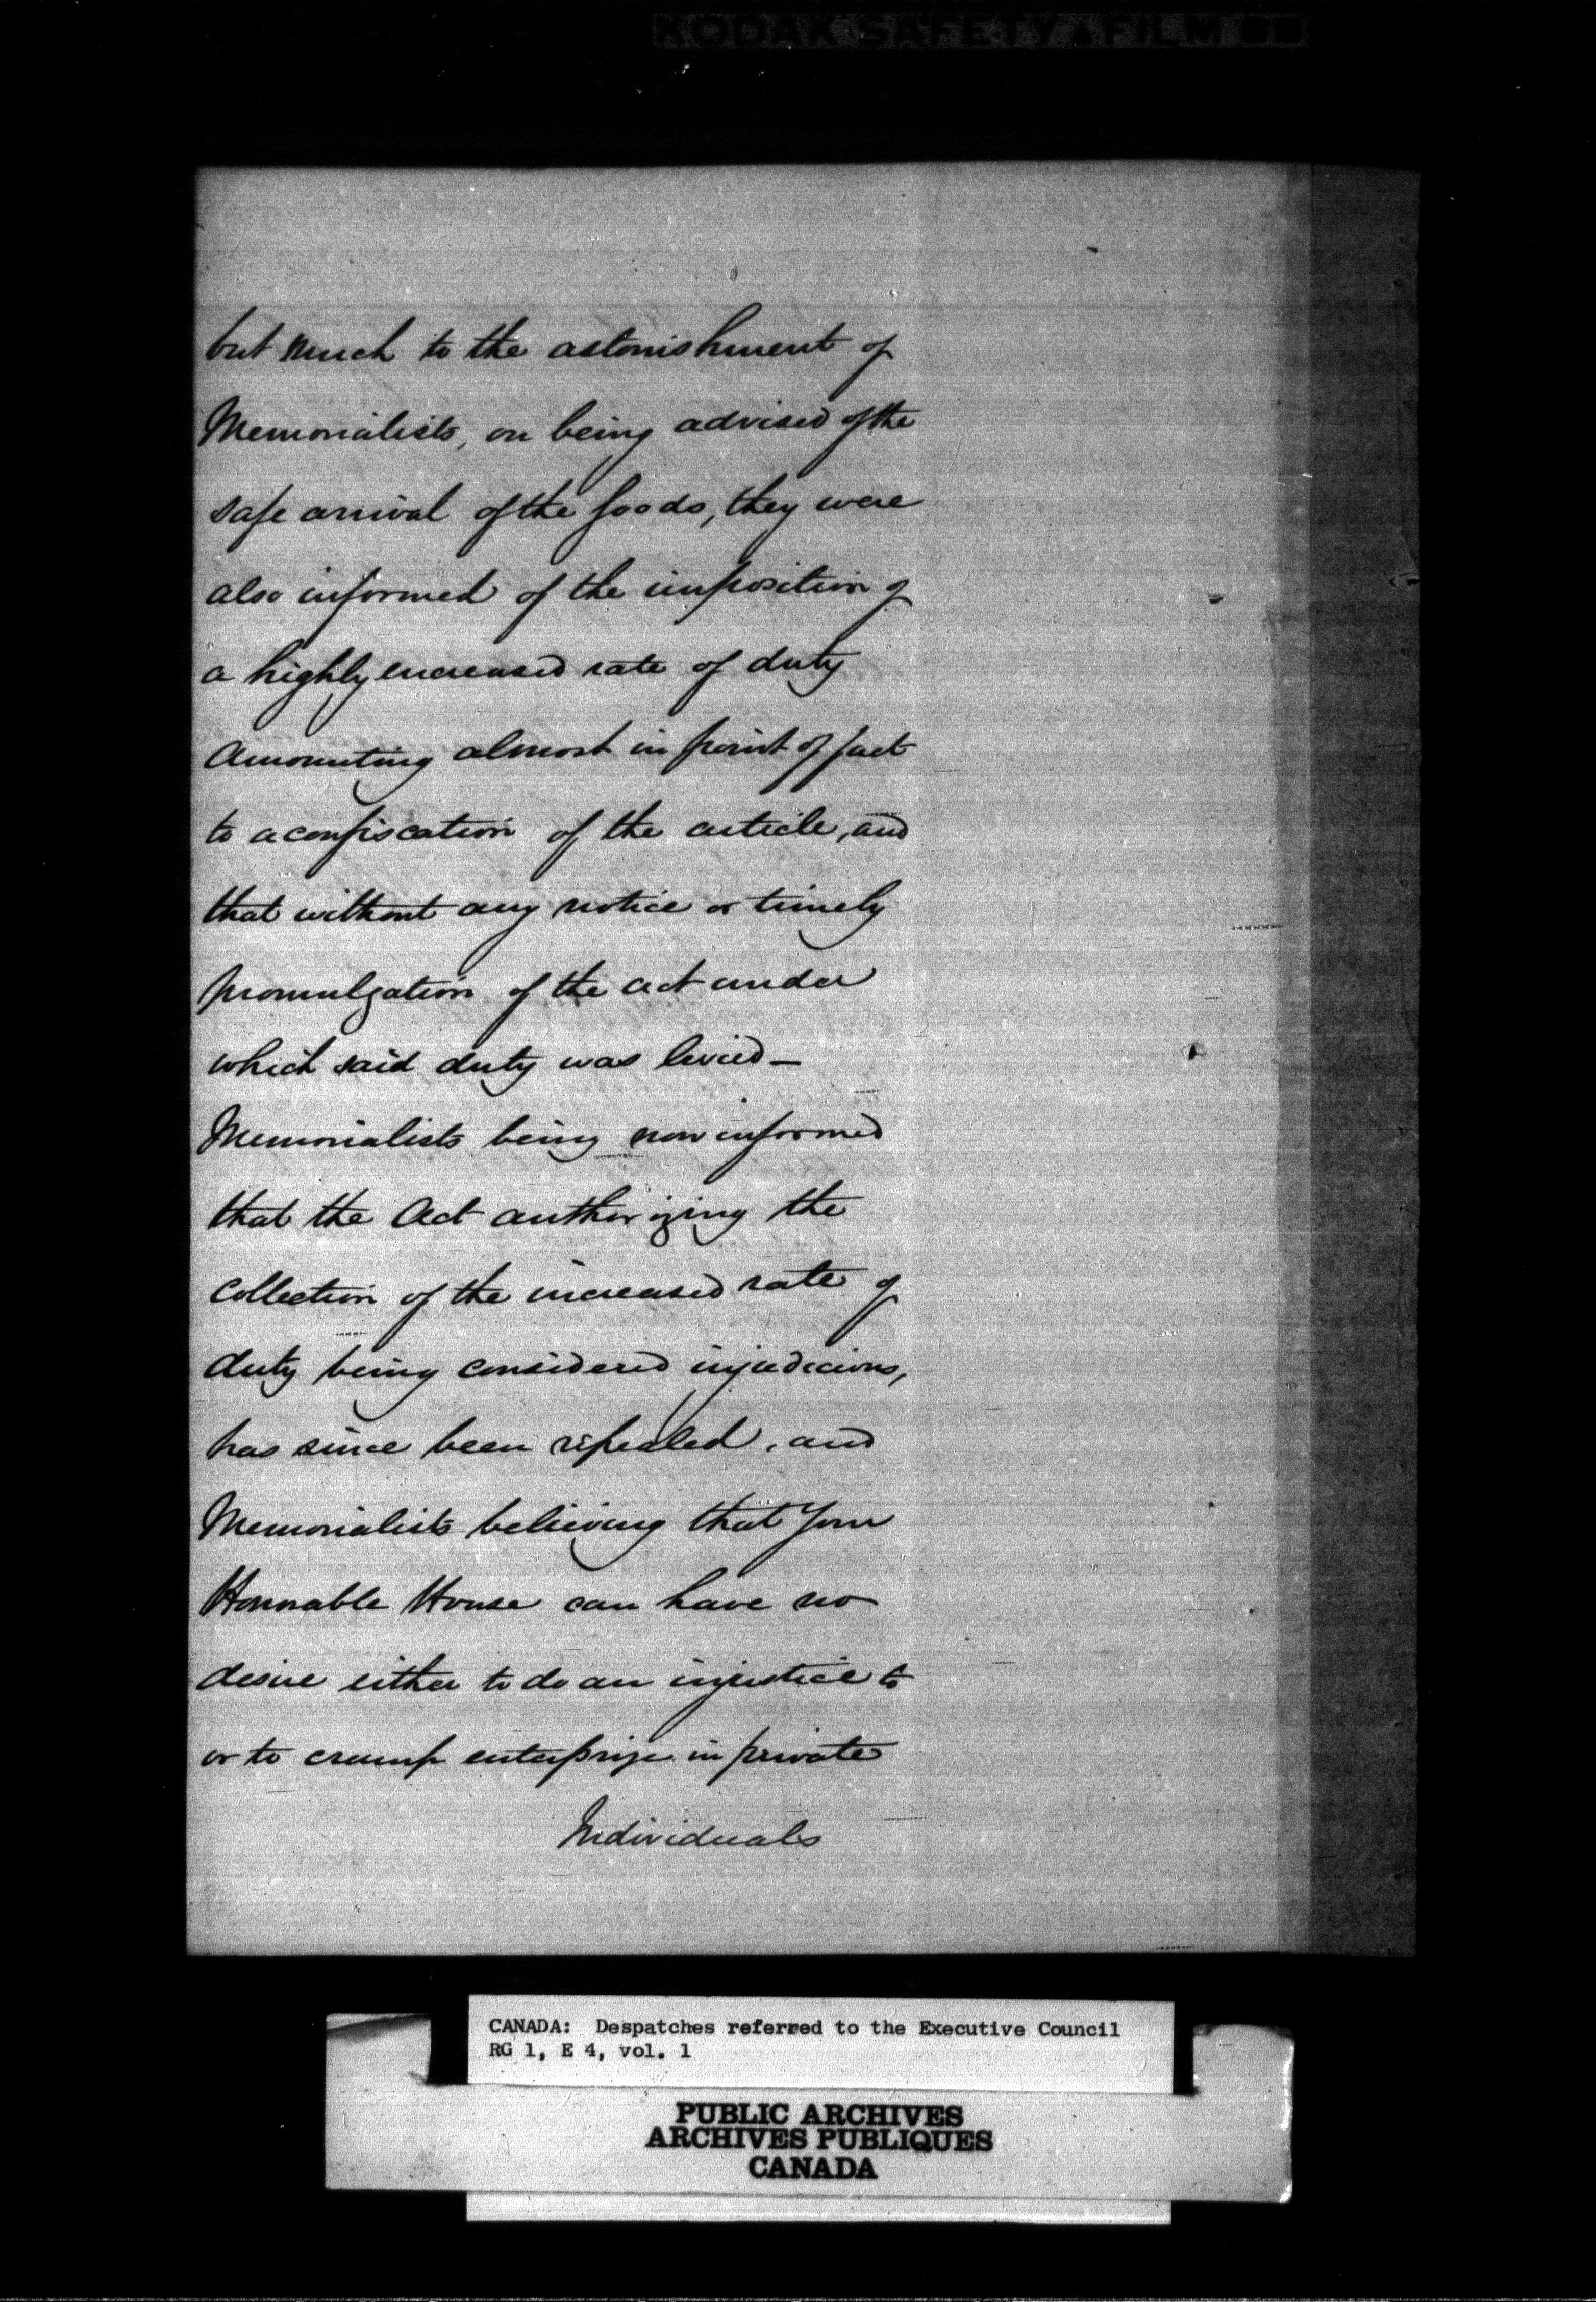 KODAK SAFETY FILM
but much to the astonishment of
Memorialists, on being advised of the
safe arrival of the Goods, they were
also informed of the imposition of
a highly encreased rate of duty
Amounting almost in point of fact
to a confiscation of the article, and
that without any notice or timely
promulgation of the act under
which said duty was levied—
Memorialists being now informed
that the Act authorizing the
Collection of the increased rate of
duty being considered injudicious,
has since been repealed, and
Memorialists believing that Your
Honorable House can have no
desire either to do an injustice to
or to cramp enterprize in private
Individuals
CANADA: Despatches referred to the Executive Council
RG 1, E 4, vol. 1
PUBLIC ARCHIVES
ARCHIVES PUBLIQUES
CANADA